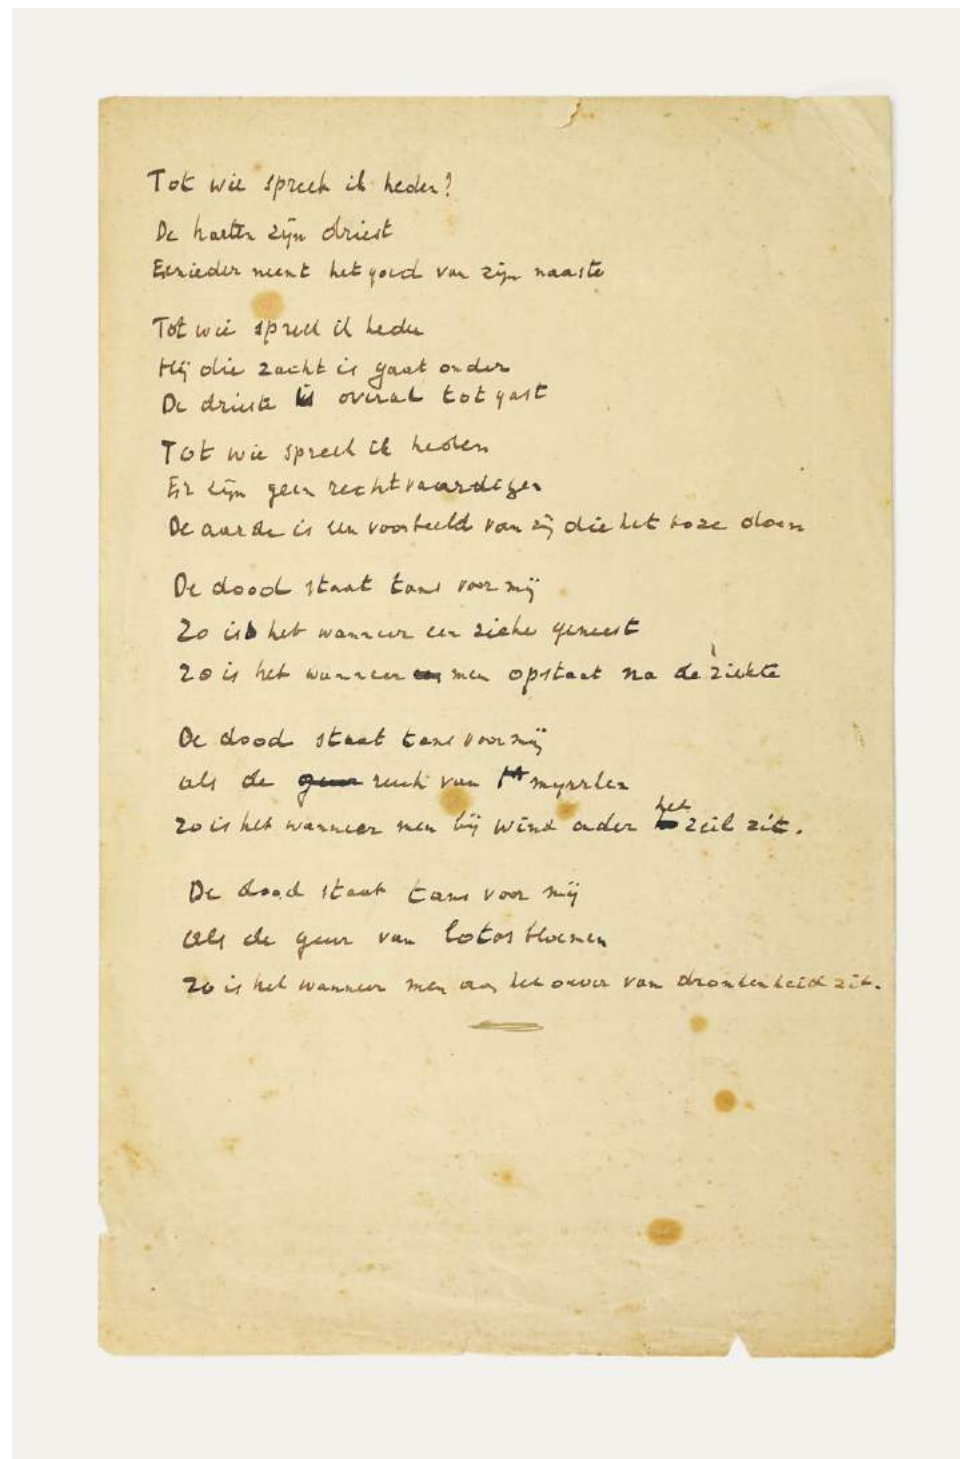 Tot wie spreek ik heden?
De harten zijn driest
Eenieder neemt het goed van zijn naaste
Tot wie spreek ik heden
Hij die zacht is gaat onder
De drieste is overal tot gast
Tot wie spreek ik heden
Er zijn geen rechtvaardigen
De aarde is een voorbeeld van zij die het boze doen
De dood staat tans voor mij
Zo is het wanneer een zieke geneest
Zo is het wanneer men opstaat na de ziekte
De dood staat tans voor mij
als de geur reuk van myrrhen
zo is het wanneer men bij wind onder het zeil zit.
De dood staat tans voor mij
als de geur van lotosbloemen
zo is het wanneer men aan het oever van dronkenheid zit.